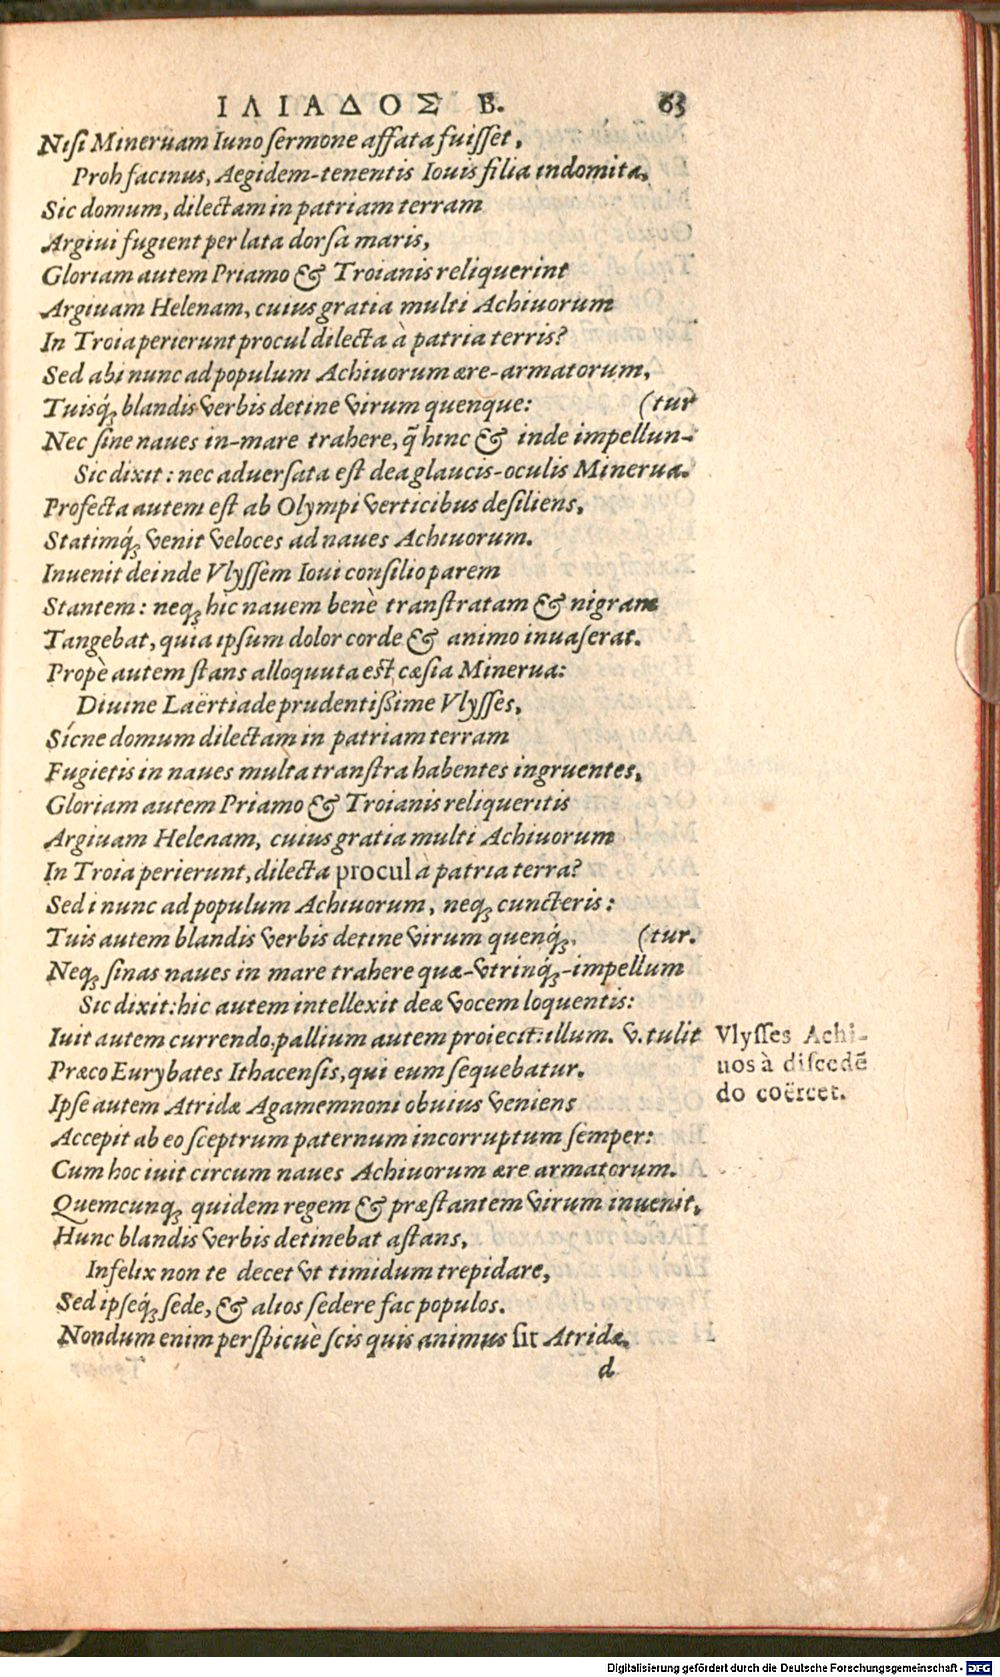 ΙΛΙΑΔΟΣ Β. 63
Nisi Mineruam Iuno sermone affata fuisset,
Proh facinus, Aegidem-tenentis Iouis filia indomita,
Sic domum, dilectam in patriam terram
Argiui fugient per lata dorsa maris,
Gloriam autem Priamo & Troianis reliquerint
Argiuam Helenam, cuius gratia multi Achiuorum
In Troia perierunt procul dilecta à patria terris?
Sed abi nunc ad populum Achiuorum ære-armatorum,
Tuisq́; blandis verbis detine virum quenque: (tur
Nec sine naues in-mare trahere, q̃ hinc & inde impellun-
Sic dixit: nec aduersata est dea glaucis-oculis Minerua.
Profecta autem est ab Olympi verticibus desiliens,
Statimq́; venit veloces ad naues Achiuorum.
Inuenit deinde Vlyssem Ioui consilio parem
Stantem: neq; hic nauem benè transtratam & nigram
Tangebat, quia ipsum dolor corde & animo inuaserat.
Propè autem stans alloquuta est cæsia Minerua:
Diuine Laërtiade prudentißime Vlysses,
Sícne domum dilectam in patriam terram
Fugietis in naues multa transtra habentes ingruentes,
Gloriam autem Priamo & Troianis reliqueritis
Argiuam Helenam, cuius gratia multi Achiuorum
In Troia perierunt, dilecta procul à patria terra?
Sed i nunc ad populum Achiuorum, neq; cuncteris:
Tuis autem blandis verbis detine virum quenq́;, (tur.
Neq; sinas naues in mare trahere quæ-vtrinq́;-impellum
Sic dixit: hic autem intellexit deæ vocem loquentis:
Iuit autem currendo, pallium autem proiecit: illum. v. tulit
Vlysses Achi-
uos à discedẽ
do coërcet.
Præco Eurybates Ithacensis, qui eum sequebatur.
Ipse autem Atridæ Agamemnoni obuius veniens
Accepit ab eo sceptrum paternum incorruptum semper:
Cum hoc iuit circum naues Achiuorum ære armatorum.
Quemcunq; quidem regem & præstantem virum inuenit,
Hunc blandis verbis detinebat astans,
Infelix non te decet vt timidum trepidare,
Sed ipseq́; sede, & alios sedere fac populos.
Nondum enim perspicuè scis quis animus sit Atridæ,
d
Digitalisierung gefördert durch die Deutsche Forschungsgemeinschaft - DFG